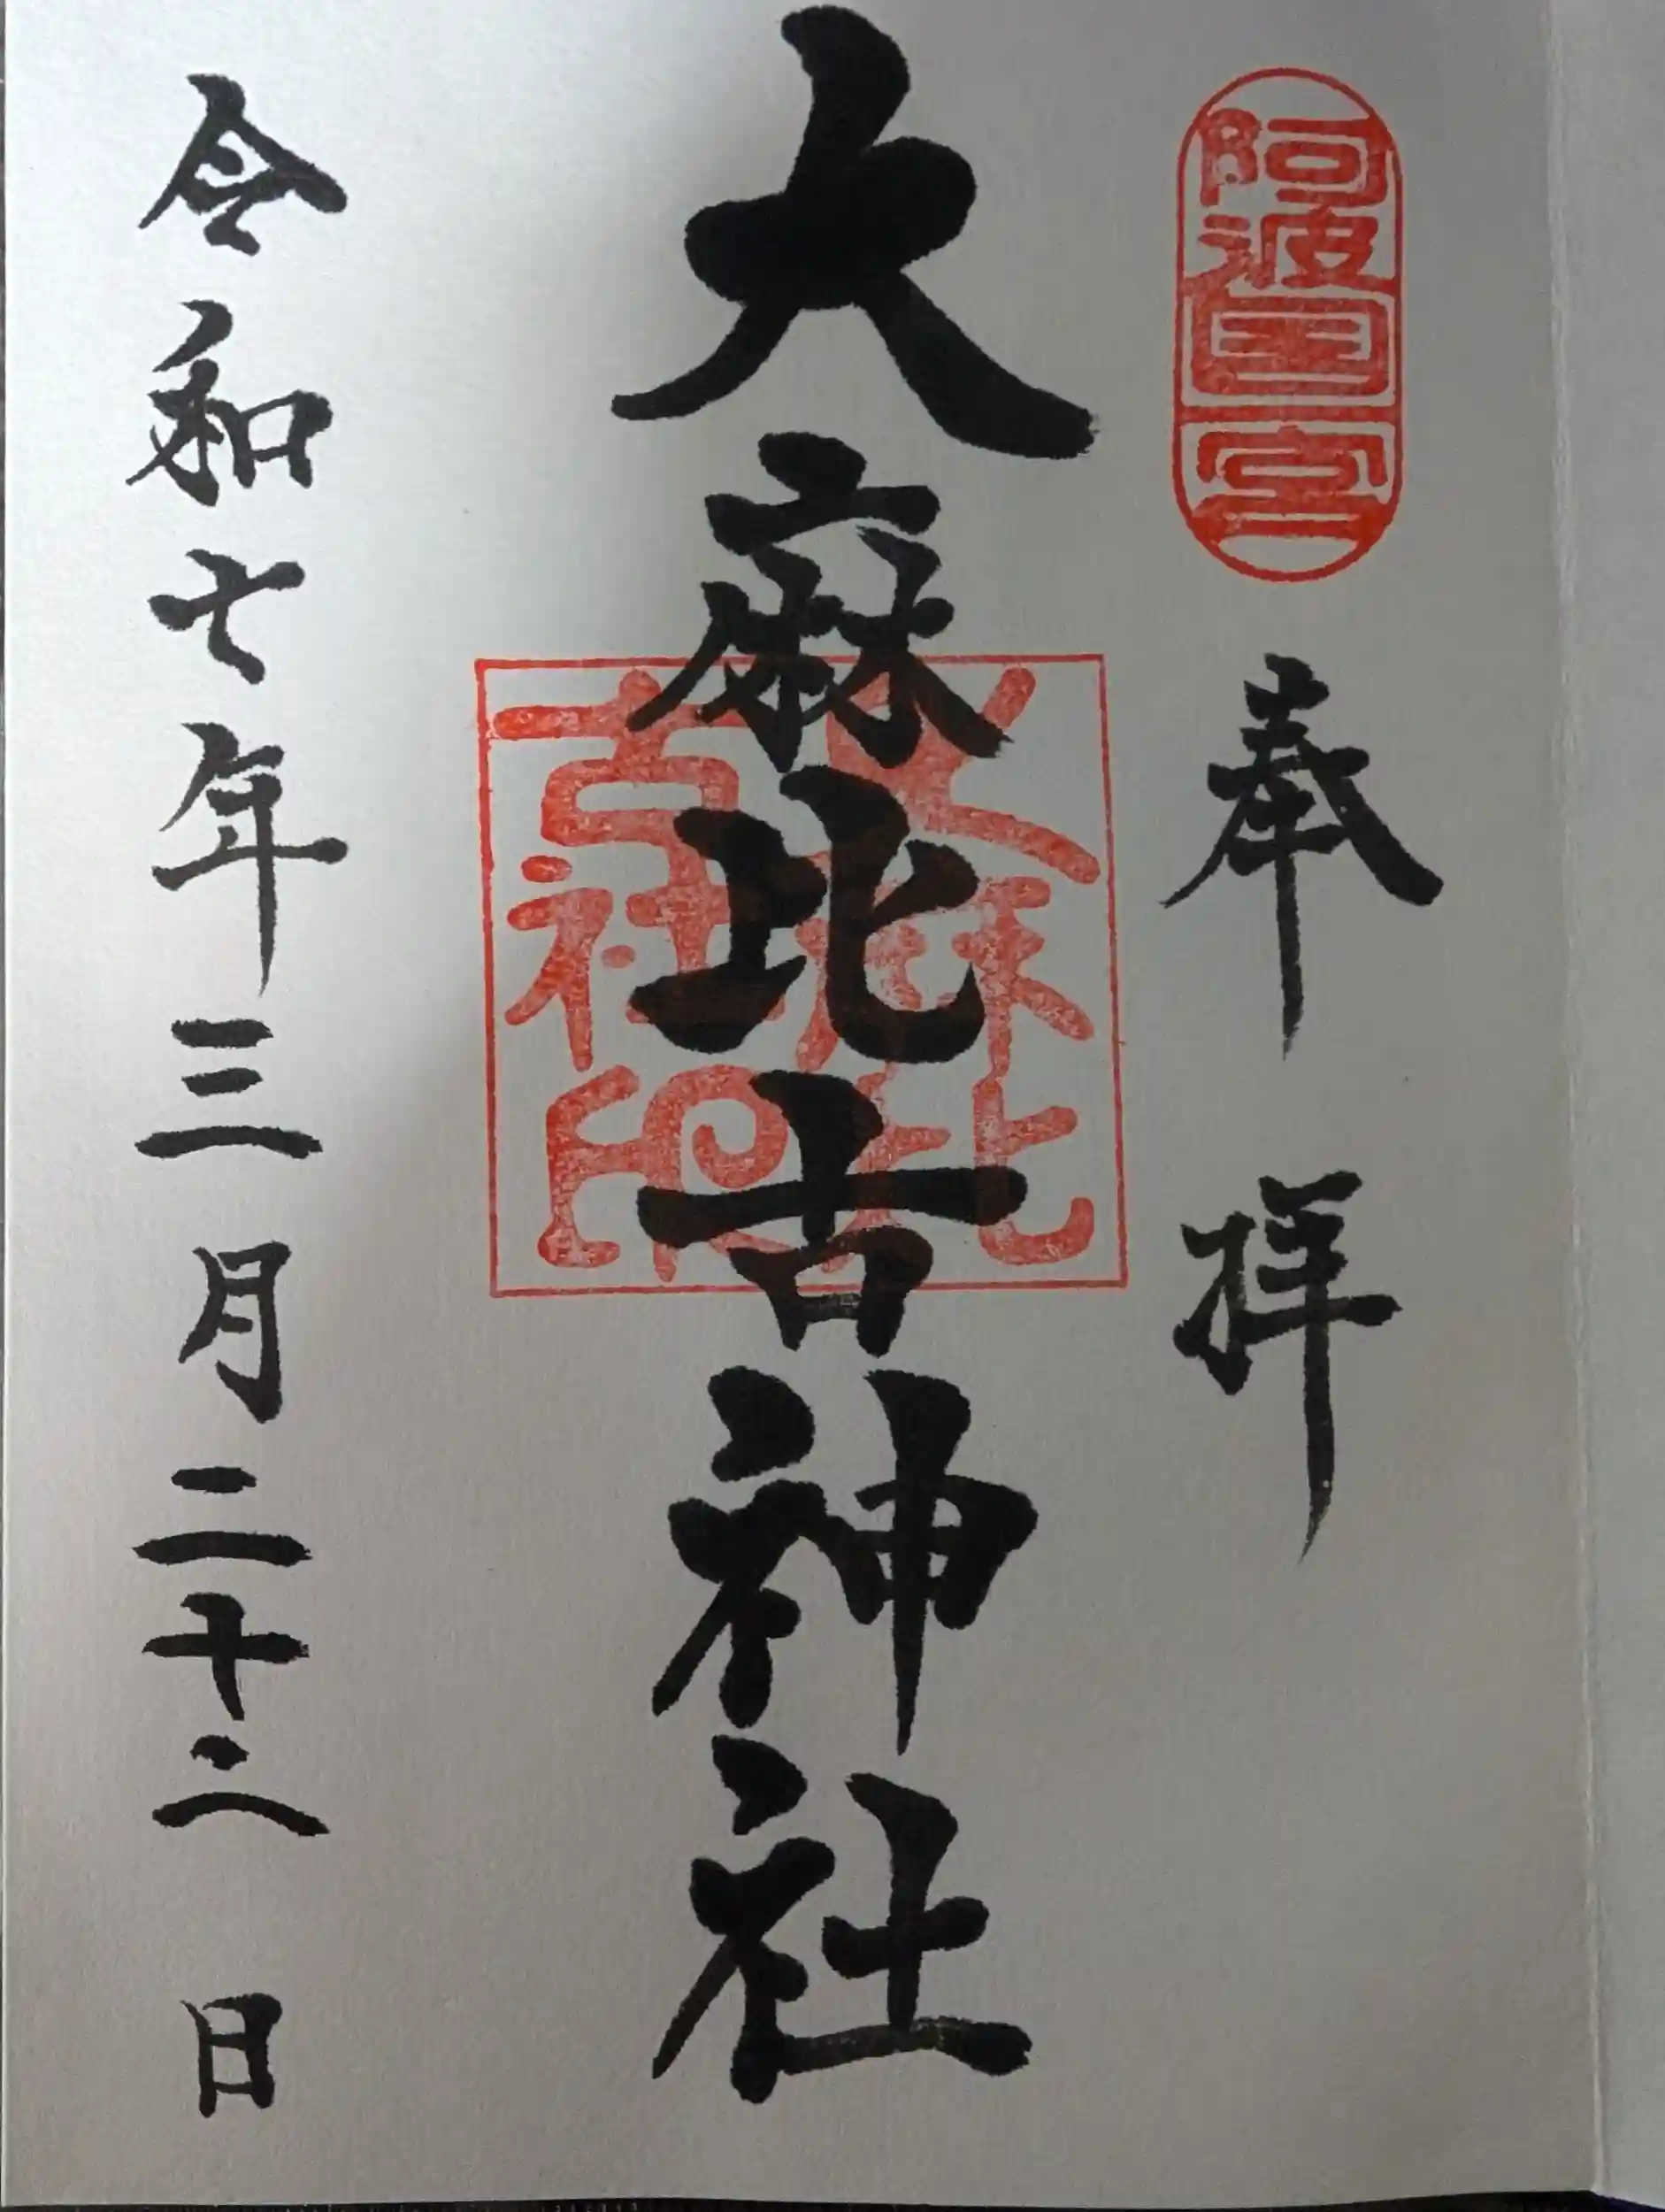 阿波国一宮
奉拝
大麻比古神社
大麻比古社印
令和七年三月二十二日